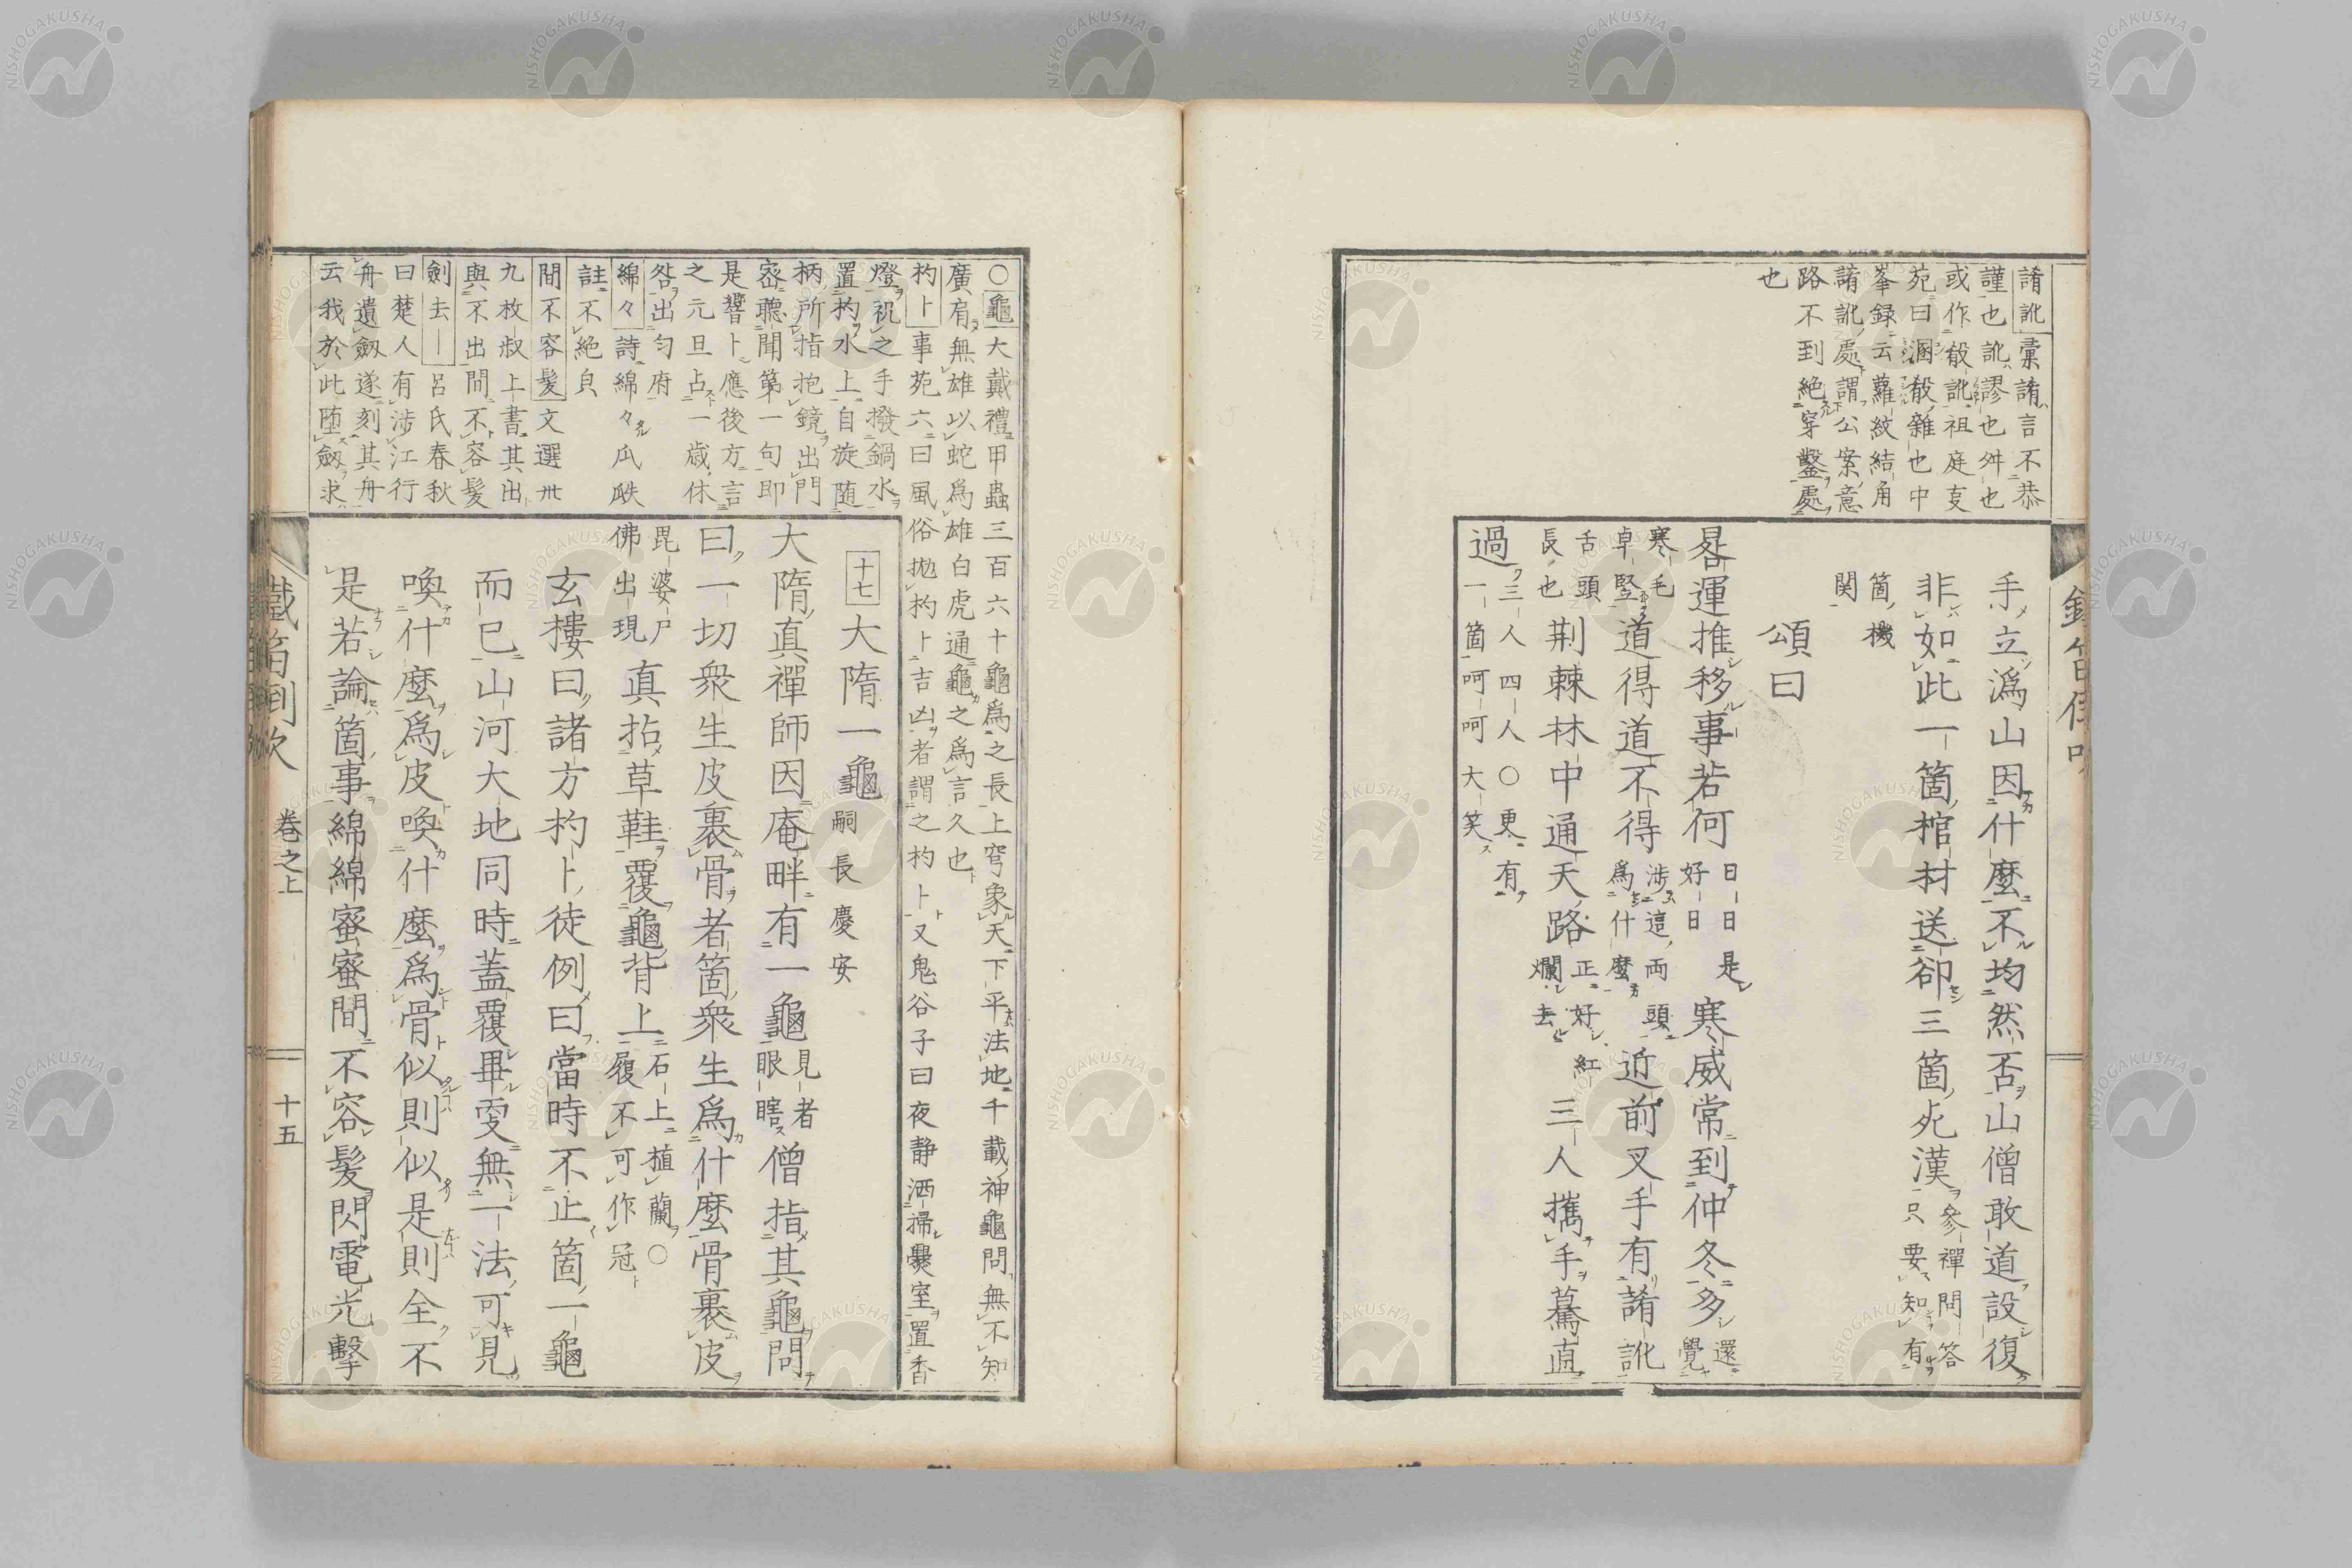 誵訛 彙誵言不恭
謹也訛謬也舛也
或作殽訛祖庭㕝
苑曰溷殽雜也中
峯録云蘿紋結角
誵訛處謂公案意
路不到絶穿鑿處
也
手立潙山因什麼不均然否山僧敢道設復
非如此一箇棺材送卻三箇死漢 參禪問答
只要知有
箇機
関
頌曰
晷運推移事若何 日日是
好日 寒威常到仲冬多 還
覺
寒毛
卓竪 道得道不得 涉這両頭
爲什麼 近前叉手有誵訛
舌頭
長也 荆棘林中通天路 正好
爛去 紅 三人攜手驀直
過 三人四人〇更有
一箇呵呵大笑
〇龜 大戴禮甲蟲三百六十龜爲之長上穹象天下平法地千載神龜問無不知
廣有無雄以蛇爲雄白虎通龜之爲言久也
杓卜 事苑六曰風俗抛杓卜吉凶者謂之杓卜又鬼谷子曰夜静洒掃爨室置香
燈祝之手撥鍋水
置杓水上自旋随
柄所指抱鏡出門
宻聽聞第一句即
是響卜應後方言
之元旦占一歳休
咎出匀府
綿々 詩綿々瓜瓞
註不絶皃
間不容髪 文選卅
九枚叔上書其出
與不出間不容髪
劍去 呂氏春秋
曰楚人有涉江行
舟遺劔遂刻其舟
云我於此堕劔求
十七 大隋一龜 嗣長慶安
大隋真禪師因庵畔有一龜 見者
眼瞎 僧指其龜問
曰一切衆生皮裏骨者箇衆生爲什麼骨裏皮
毘婆尸
佛出現 真拈草鞋覆龜背上 石上植蘭〇
履不可作冠
玄樓曰諸方杓卜徒例曰當時不止箇一龜
而已山河大地同時蓋覆畢㕝無一法可見
喚什麼爲皮喚什麼爲骨似則似是則全不
是若論箇事綿綿蜜蜜間不容髪閃電光擊
鐵笛倒吹 卷之上 十五